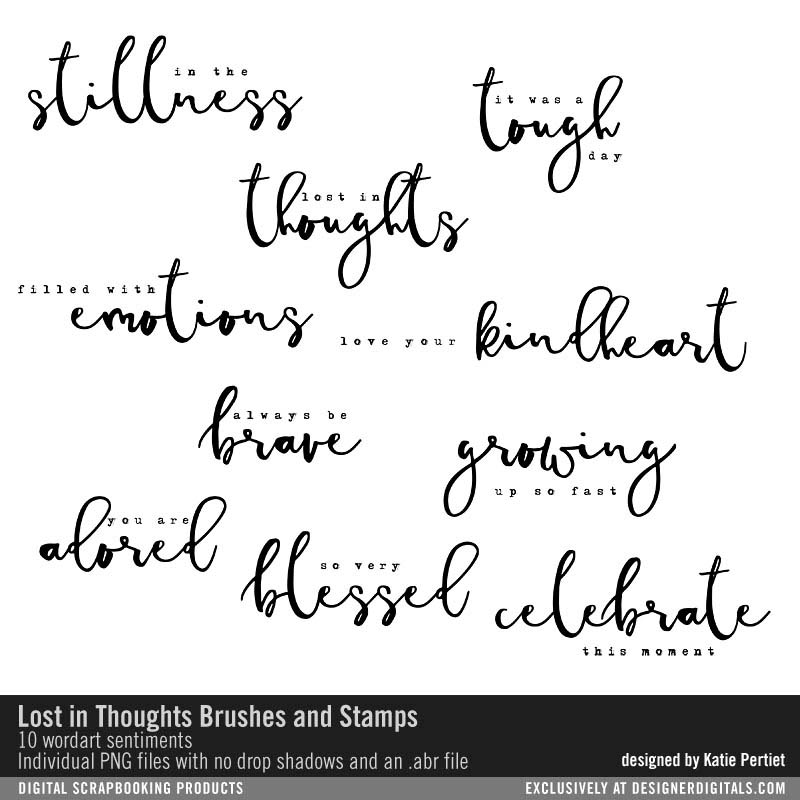 in the
stillness
it was a
tough
day
lost in
thoughts
filled with
emotions
love your
kindheart
always be
brave
growing
up so fast
you are
adored
so very
blessed
celebrate
this moment
Lost in Thoughts Brushes and Stamps
10 wordart sentiments
Individual PNG files with no drop shadows and an .abr file
designed by Katie Pertiet
DIGITAL SCRAPBOOKING PRODUCTS
EXCLUSIVELY AT DESIGNERDIGITALS.COM